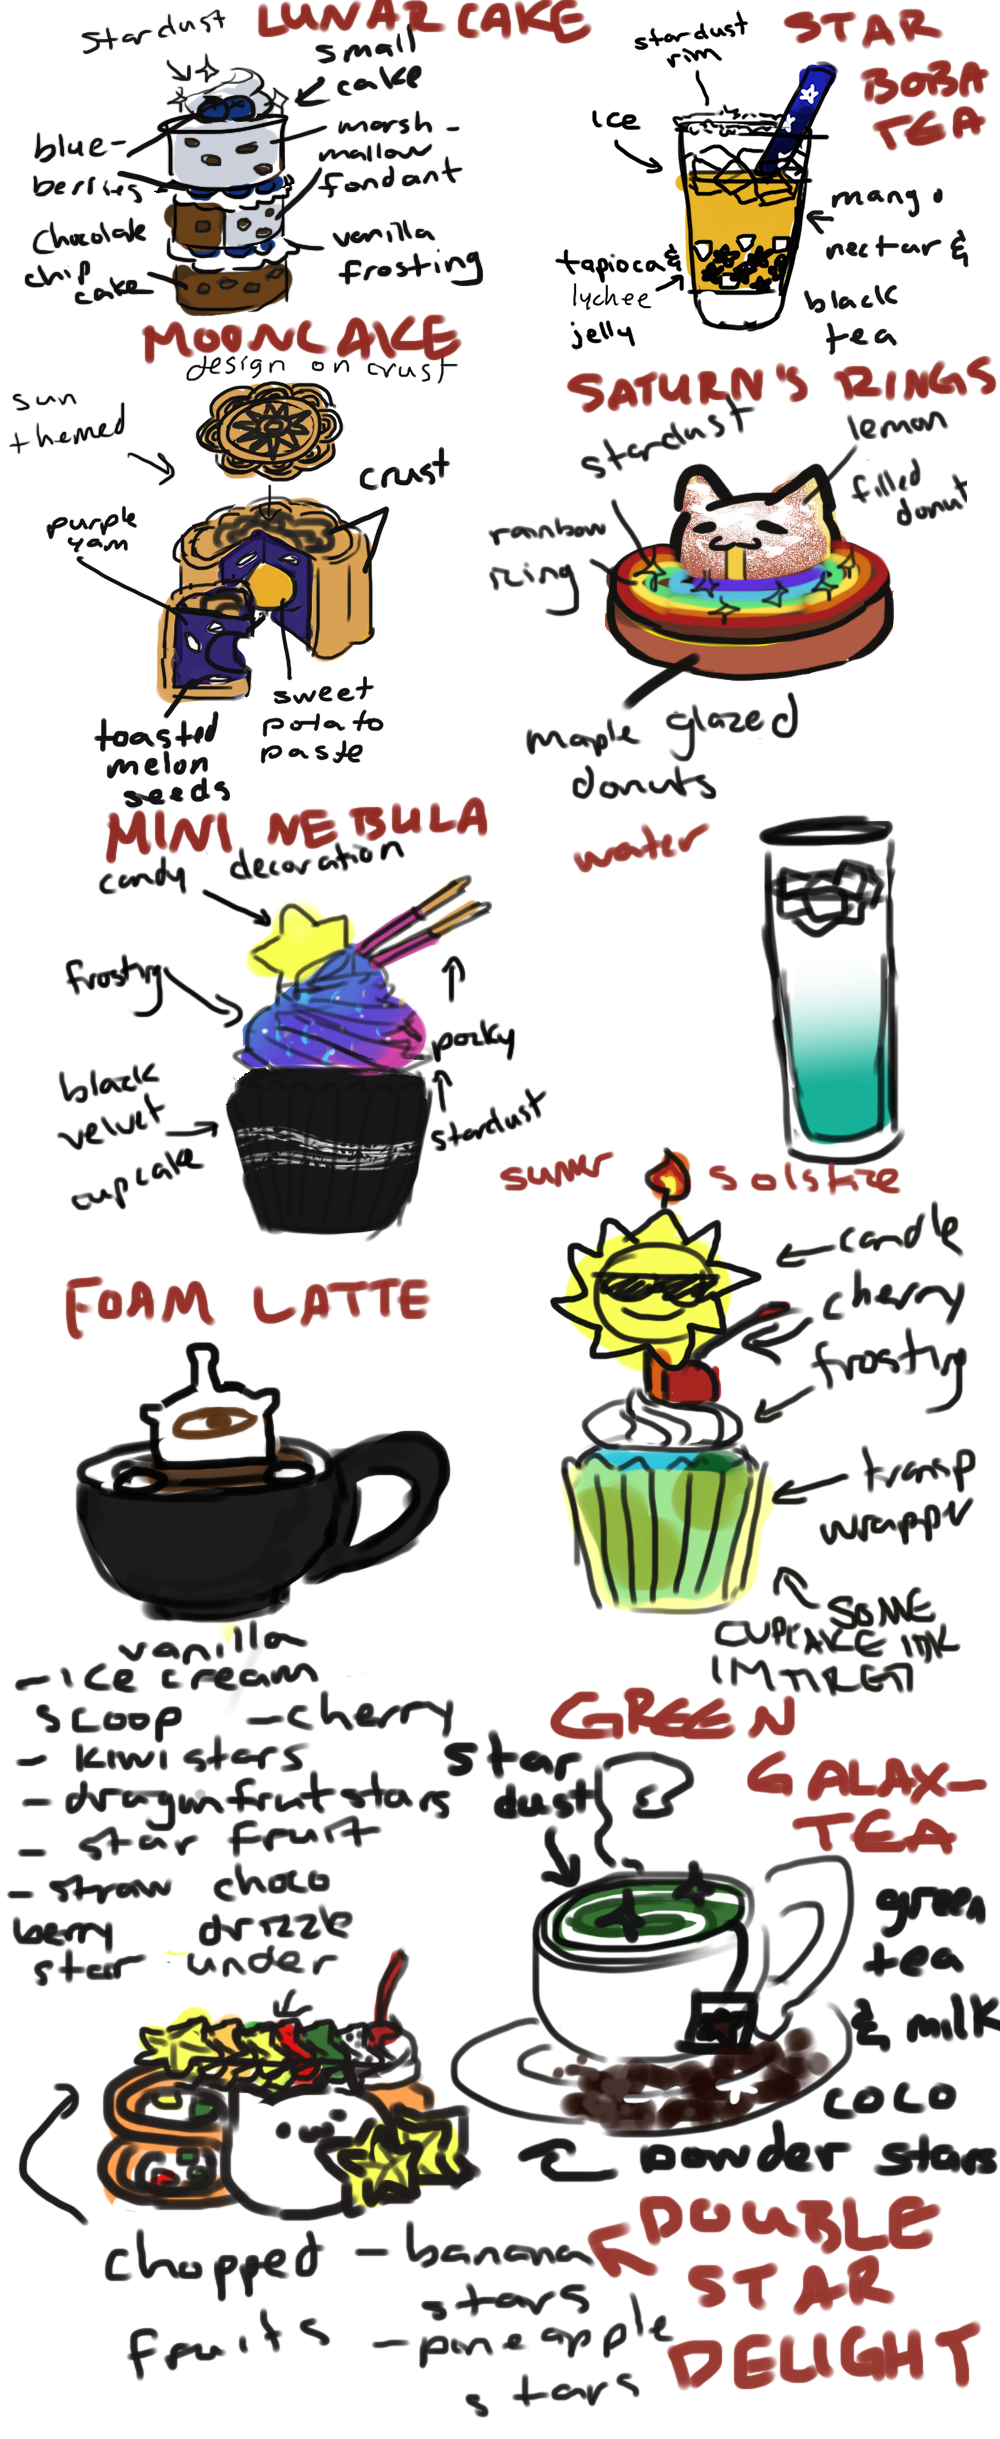 LUNAR CAKE
stardust
small
cake
blue-
berries
marsh-
mallow
fondant
chocolate
chip
cake
vanilla
frosting
STAR
BOBA
TEA
stardust
rim
ice
mango
nectar &
black
tea
tapioca &
lychee
jelly
MOONCAKE
design on crust
sun
themed
crust
purple
yam
sweet
potato
paste
toasted
melon
seeds
SATURN'S RINGS
stardust
lemon
filled
donut
rainbow
icing
maple glazed
donuts
MINI NEBULA
candy decoration
frosting
pocky
stardust
black
velvet
cupcake
water
sumr solstice
candle
cherry
frosting
transp
wrappr
SOME
CUPCAKE IDK
IM TIRED
FOAM LATTE
vanilla
- ice cream
scoop - cherry
- kiwi stars
- dragunfruit stars
- star fruit
- straw choco
berry drizzle
star under
chopped
fruits
- banana
stars
- pineapple
stars
DOUBLE
STAR
DELIGHT
GREEN
GALAX-
TEA
star
dust
green
tea
& milk
coco
powder stars